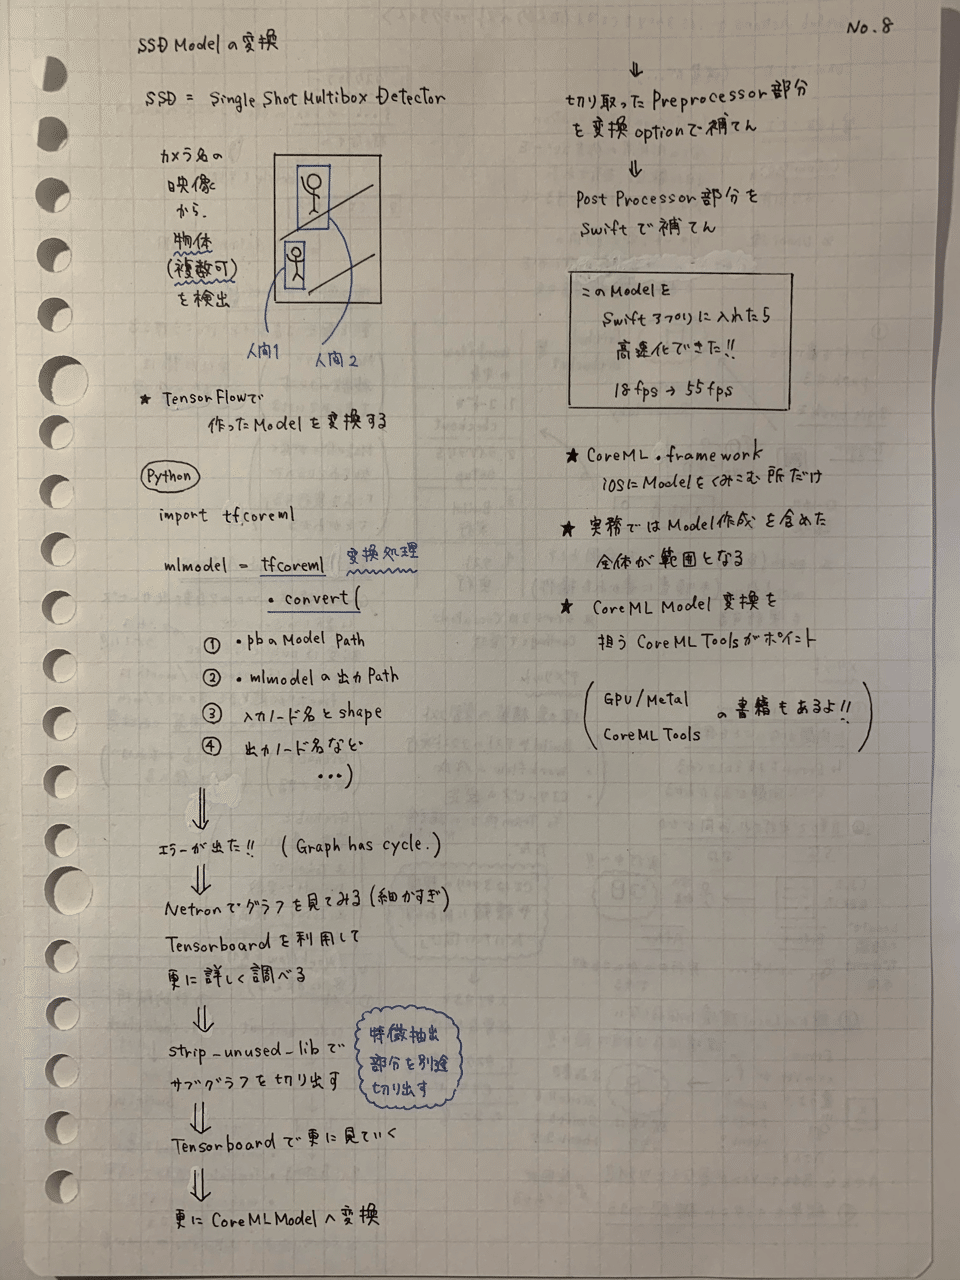 No.8
SSD Modelの変換
SSD = Single Shot Multibox Detector
カメラ名の
映像
から、
物体
(複数可)
を検出
人間1
人間2
★ TensorFlowで
作ったModelを変換する
Python
import tfcoreml
mlmodel = tfcoreml 変換処理
・convert(
① ・pbのModel Path
② ・mlmodelの出力Path
③ 入力ノード名とshape
④ 出力ノード名など
…)
⇓
エラーが出た!! (Graph has cycle.)
⇓
Netronでグラフを見てみる(細かすぎ)
Tensorboardを利用して
更に詳しく調べる
⇓
strip_unused_libで
サブグラフを切り出す
特徴抽出
部分を別途
切り出す
⇓
Tensorboardで更に見ていく
⇓
更にCoreMLModelへ変換
⇓
切り取ったPreprocessor部分
を変換optionで補てん
⇓
Post Processor部分を
Swiftで補てん
このModelを
Swift アプリに入れたら
高速化できた!!
18fps → 55fps
★ CoreML.framework
iOSにModelをくみこむ所だけ
★ 実務ではModel作成を含めた
全体が範囲となる
★ CoreML Model 変換を
担う CoreML Toolsがポイント
(GPU/Metal
CoreML Tools の書籍もあるよ!!)